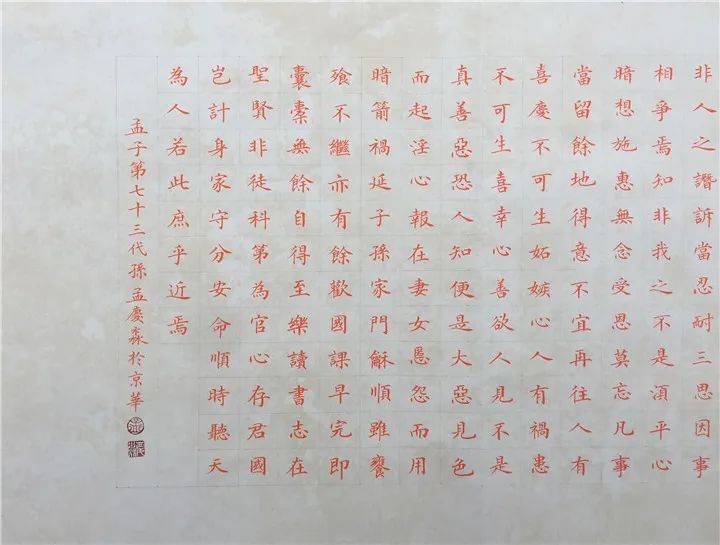 非人之譖訴當忍耐三思因事
相爭焉知非我之不是湏平心
暗想施惠無念受恩莫忘凡事
當留餘地得意不宜再往人有
喜慶不可生妬嫉心人有禍患
不可生喜幸心善欲人見不是
真善惡恐人知便是大惡見色
而起淫心報在妻女慝怨而用
暗箭禍延子孫家門龢順雖饔
飧不繼亦有餘歡國課早完即
囊橐無餘自得至樂讀書志在
聖賢非徒科第為官心存君國
豈計身家守分安命順時聽天
為人若此庶乎近焉
孟子第七十三代孫孟慶森於京華